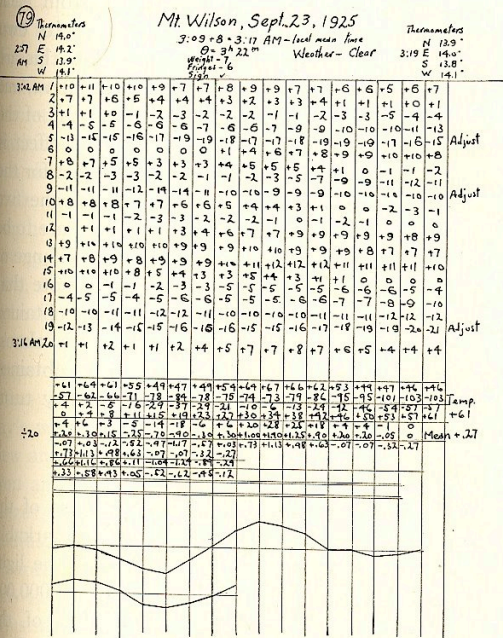 79 Mt. Wilson, Sept. 23, 1925
Thermometers
N 14.0°
2:57 E 14.2°
AM S 13.9°
W 14.1°
3:09 + 8 = 3:17 AM - local mean time
θ = 3h 22m
Weight - 7
Fringes - 6
Sign ✓
Weather - Clear
Thermometers
N 13.9°
3:19 E 14.0°
S 13.8°
W 14.1°
3:02 AM 1 +10 +11 +10 +10 +9 +7 +7 +8 +9 +9 +7 +7 +6 +6 +5 +6 +7
2 +7 +7 +6 +5 +4 +4 +4 +3 +2 +3 +3 +4 +1 +1 +1 0 +1
3 +1 +1 0 -1 -2 -3 -2 -2 -2 -1 -1 -2 -3 -3 -5 -4 -4
4 -4 -5 -5 -6 -6 -6 -7 -6 -6 -7 -9 -9 -10 -10 -10 -11 -13
5 -13 -15 -15 -16 -17 -19 -19 -18 -17 -17 -18 -19 -19 -19 -17 -16 -15 Adjust
6 0 0 0 0 0 0 0 +1 +4 +6 +7 +8 +9 +9 +10 +10 +8
7 +8 +7 +5 +5 +3 +3 +3 +4 +5 +5 +5 +4 +1 0 -1 -1 -2
8 -2 -2 -3 -3 -2 -2 -1 -1 -2 -3 -5 -7 -9 -9 -11 -12 -11
9 -11 -11 -11 -12 -14 -14 -11 -10 -10 -9 -9 -9 -10 -10 -10 -10 -10 Adjust
10 +8 +8 +8 +7 +7 +6 +6 +5 +4 +4 +3 +1 0 0 -2 -3 -1
11 -1 -1 -1 -2 -3 -3 -2 -2 -2 -1 0 -1 -2 -1 0 0 0
12 0 +1 +1 +1 +1 +3 +4 +6 +7 +7 +9 +9 +9 +9 +9 +8 +9
13 +9 +10 +10 +10 +10 +9 +9 +9 +10 +10 +9 +9 +9 +8 +7 +7 +7
14 +7 +8 +9 +8 +9 +9 +9 +10 +11 +12 +12 +12 +11 +11 +11 +11 +10
15 +10 +10 +10 +8 +5 +4 +3 +3 +5 +4 +3 +1 +1 0 0 0 0
16 0 0 -1 -1 -2 -3 -3 -5 -5 -5 -5 -5 -6 -6 -6 -5 -4
17 -4 -5 -5 -4 -5 -6 -6 -5 -5 -5 -6 -6 -7 -7 -8 -9 -10
18 -10 -10 -10 -11 -11 -12 -12 -11 -10 -10 -10 -10 -11 -11 -12 -12 -12
19 -12 -13 -14 -15 -15 -16 -16 -15 -16 -15 -16 -17 -18 -19 -19 -20 -21 Adjust
3:16 AM 20 +1 +1 +2 +1 +1 +2 +4 +5 +7 +7 +8 +7 +6 +5 +4 +4 +4
+61 +64 +61 +55 +49 +47 +49 +54 +64 +67 +66 +62 +53 +49 +47 +46 +46
-57 -62 -66 -71 -78 -84 -78 -75 -74 -73 -79 -86 -95 -95 -101 -103 -103 Temp.
+4 +2 -5 -16 -29 -37 -29 -21 -10 -6 -13 -24 -42 -46 -54 -57 -57 +61
0 +4 +8 +11 +15 +19 +23 +27 +30 +34 +38 +42 +46 +50 +53 +57 +61
+4 +6 +3 -5 -14 -18 -6 +6 +20 +28 +25 +18 +4 +4 -1 0
÷20 +.20 +.30 +.15 -.25 -.70 -.90 -.30 +.30 +1.00 +1.40 +1.25 +.90 +.20 +.20 -.05 0 Mean +.27
-.07 +.03 -.12 -.52 -.97 -1.17 -.57 +.03 +.73 +1.13 +.98 +.63 -.07 -.07 -.32 -.27
+.73 +1.13 +.98 +.63 -.07 -.07 -.32 -.27
+.66 +1.16 +.86 +.11 -1.04 -1.24 -.89 -.24
+.33 +.58 +.43 +.05 -.52 -.62 -.45 -.12